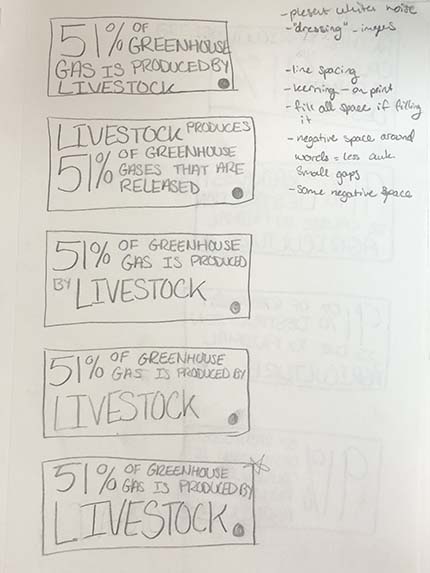 51% OF
GREENHOUSE
GAS IS PRODUCED BY
LIVESTOCK
LIVESTOCK PRODUCES
51% OF GREENHOUSE
GASES THAT ARE
RELEASED
51% OF GREENHOUSE
GAS IS PRODUCED
BY LIVESTOCK
51% OF GREENHOUSE
GAS IS PRODUCED BY
LIVESTOCK
51% OF GREENHOUSE
GAS IS PRODUCED BY
LIVESTOCK
- present whiter noise
- "dressing" - images
- line spacing
- kerning - on print
- fill all space if filling
it
- negative space around
words = less awk
small gaps
- some negative space